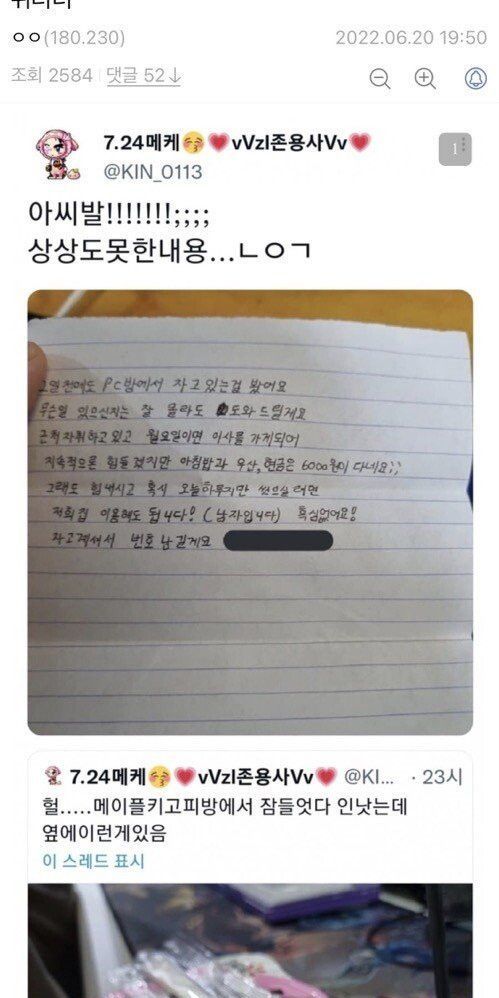 ㅇㅇ(180.230) 2022.06.20 19:50
조회 2584 댓글 52↓
7.24메케😚💗vVzl존용사Vv💗
1
@KIN_0113
아씨발!!!!!!!;;;;
상상도못한내용...ㄴㅇㄱ
전에도 PC방에서 자고 있는걸 봤어요
무슨일 있으신지는 잘 몰라도 도와 드릴게요
근처 자취하고 있고 월요일이면 이사를 가게되어
지속적으론 힘들겠지만 아침밥과 우산, 현금은 6000원이 다네요;;
그래도 힘내시고 혹시 오늘하루지만 씻으실 려면
저희집 이용해도 됩니다! (남자입니다) 흑심없어요!
자고계셔서 번호 남길게요
7.24메케😚💗vVzl존용사Vv💗 @KI... · 23시
헐.....메이플키고피방에서 잠들엇다 인낫는데
옆에이런게있음
이 스레드 표시